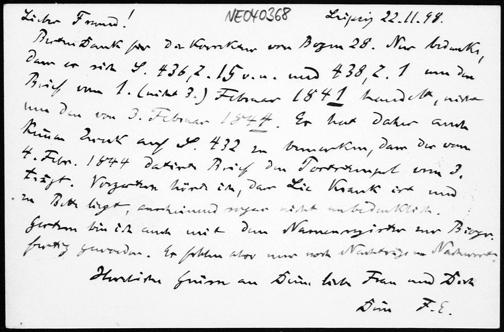 NEO40368
Lieber Freund! Leipzig 22.11.98.
Besten Dank für die Korrektur von Bogen 28. Nur bedenke,
dass es sich S. 436, Z. 15 v. u. und 438, Z. 1 um den
Brief vom 1. (nicht 3.) Februar 1841 handelt, nicht
um den vom 3. Februar 1844. Es hat daher auch
keinen Zweck auf S. 432 zu bemerken, dass der vom
4. Febr. 1844 datierte Brief den Poststempel vom 3.
trägt. Vorgestern hörte ich, dass Lie krank ist und
zu Bett liegt, anscheinend sogar nicht unbedenklich.
Gestern bin ich auch mit dem Namenregister zur Biogr.
fertig geworden. Es fehlen also nur noch
Herzliche Grüsse an Deine liebe Frau und Dich
Dein F. E.